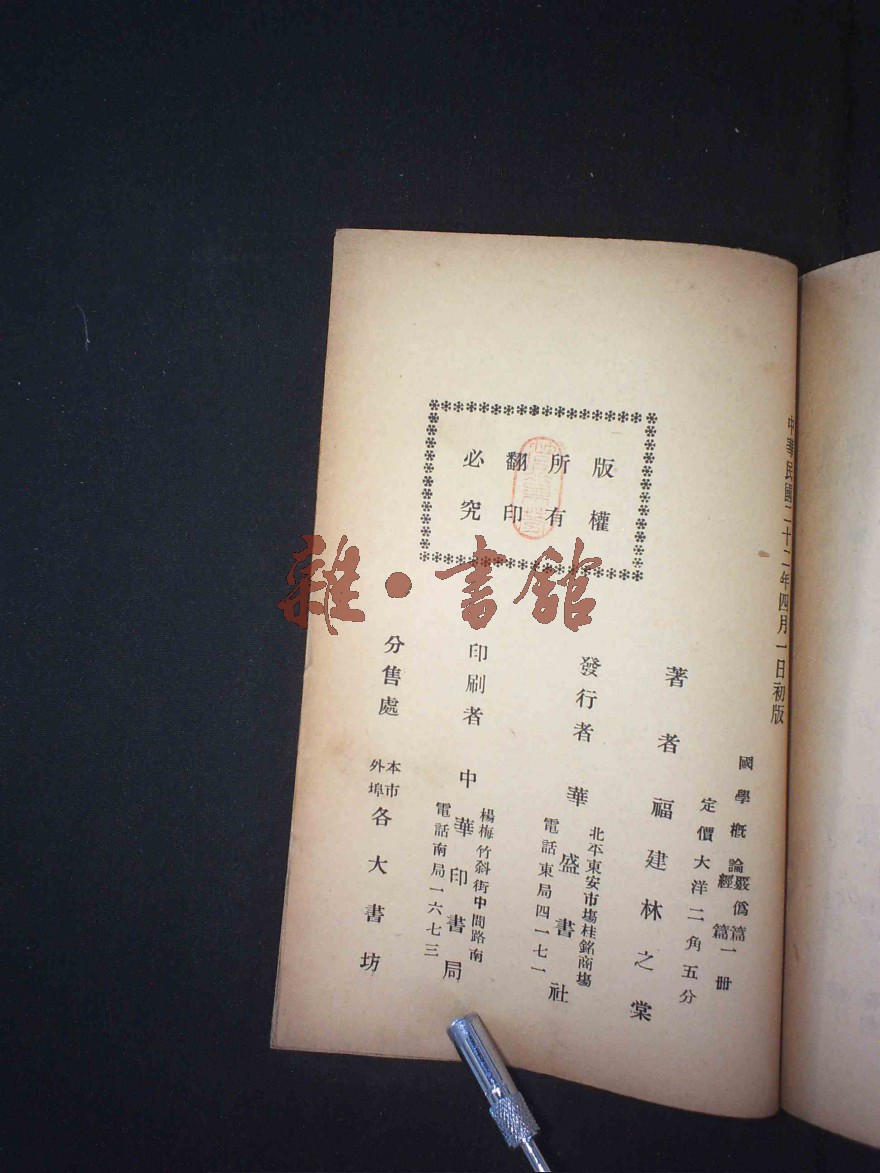 中華民國二十二年四月一日初版
國學概論經篇一冊
定價大洋二角五分
著者 福建林之棠
發行者 華盛書社
北平東安市塲桂銘商塲
電話東局四一七一
印刷者 中華印書局
楊梅竹斜街中間路南
電話南局一六七三
分售處 本市外埠各大書坊
版權
所有
翻印
必究
雜·書館